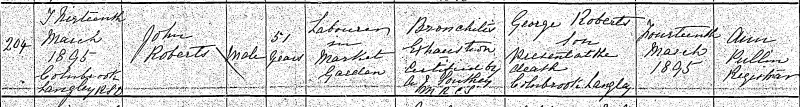 204
Thirteenth
March
1895
Colnbrook
Langley R.S.D
John
Roberts
Male
51
years
Labourer
in
Market
Garden
Bronchitis
Exhaustion
Certified by
M.R.C.S
George Roberts
Son
Present at the
death
Colnbrook Langley
Fourteenth
March
1895
Ann
Pullin
Registrar